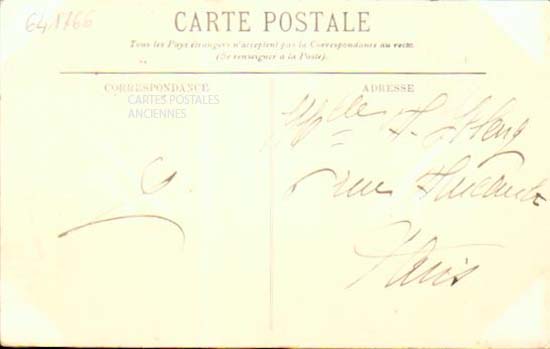 64.1766
CARTE POSTALE
Tous les Pays étrangers n'acceptent pas la Correspondance au recto.
(Se renseigner à la Poste).
CORRESPONDANCE
CARTES POSTALES
ANCIENNES
ADRESSE
Mlle
rue
Paris